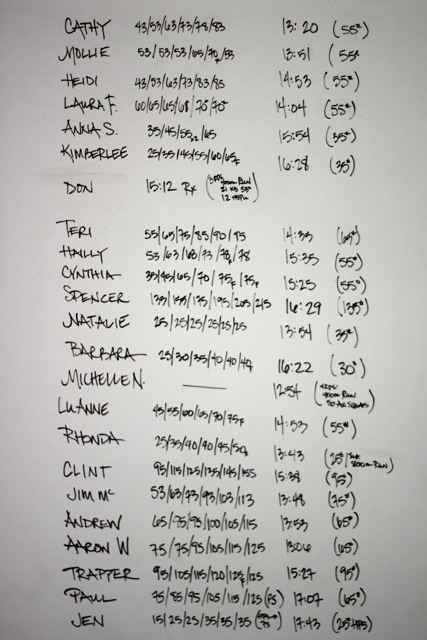 CATHY 43/53/63/73/78/83 13:20 (55#)
MOLLIE 53/53/53/65/70F/53 13:51 (55#
HEIDI 43/53/63/73/83/85 14:53 (55#)
LAURA F. 60/65/65/68/70/70 14:04 (55#)
ANNA S. 35/45/55x2/65 15:54 (35#)
KIMBERLEE 25/35/45/55/60/65F 16:28 (35#)
DON 15:12 Rx (3 RDS 400m RUN 21 KB 55# 12
TERI 55/65/75/85/90/95 14:35 (65#)
HAILLY 53/63/68/73/78F/78 15:35 (55#)
CYNTHIA 35/45/65/70/75F/75F 15:25 (55#)
SPENCER 135/155/175/195/205/215 16:29 (135#)
NATALIE 25/25/25/25/25/25 13:54 (35#)
BARBARA 25/30/35/40/40/40 16:22 (30#)
MICHELLE N. — 12:54 (4 RDS: 400m RUN 50 AIR SQUATS)
LUANNE 45/55/60/65/70/75F 14:53 (55#)
RHONDA 25/35/40/40/45/50F 13:43 (25#/ 800m RUN)
CLINT 95/115/125/135/145/155 15:38 (95#)
JIM MC 53/63/73/93/103/113 13:48 (75#)
ANDREW 65/75/95/100/105/115 13:53 (65#)
AARON W 75/75/95/105/115/125 13:06 (65#)
TRAPPER 95/105/115/120/125F/125 15:27 (95#)
PAUL 75/85/95/105/115/125(PS) 17:07 (65#)
JEN 15/25/25/35/35/35 17:43 (25#